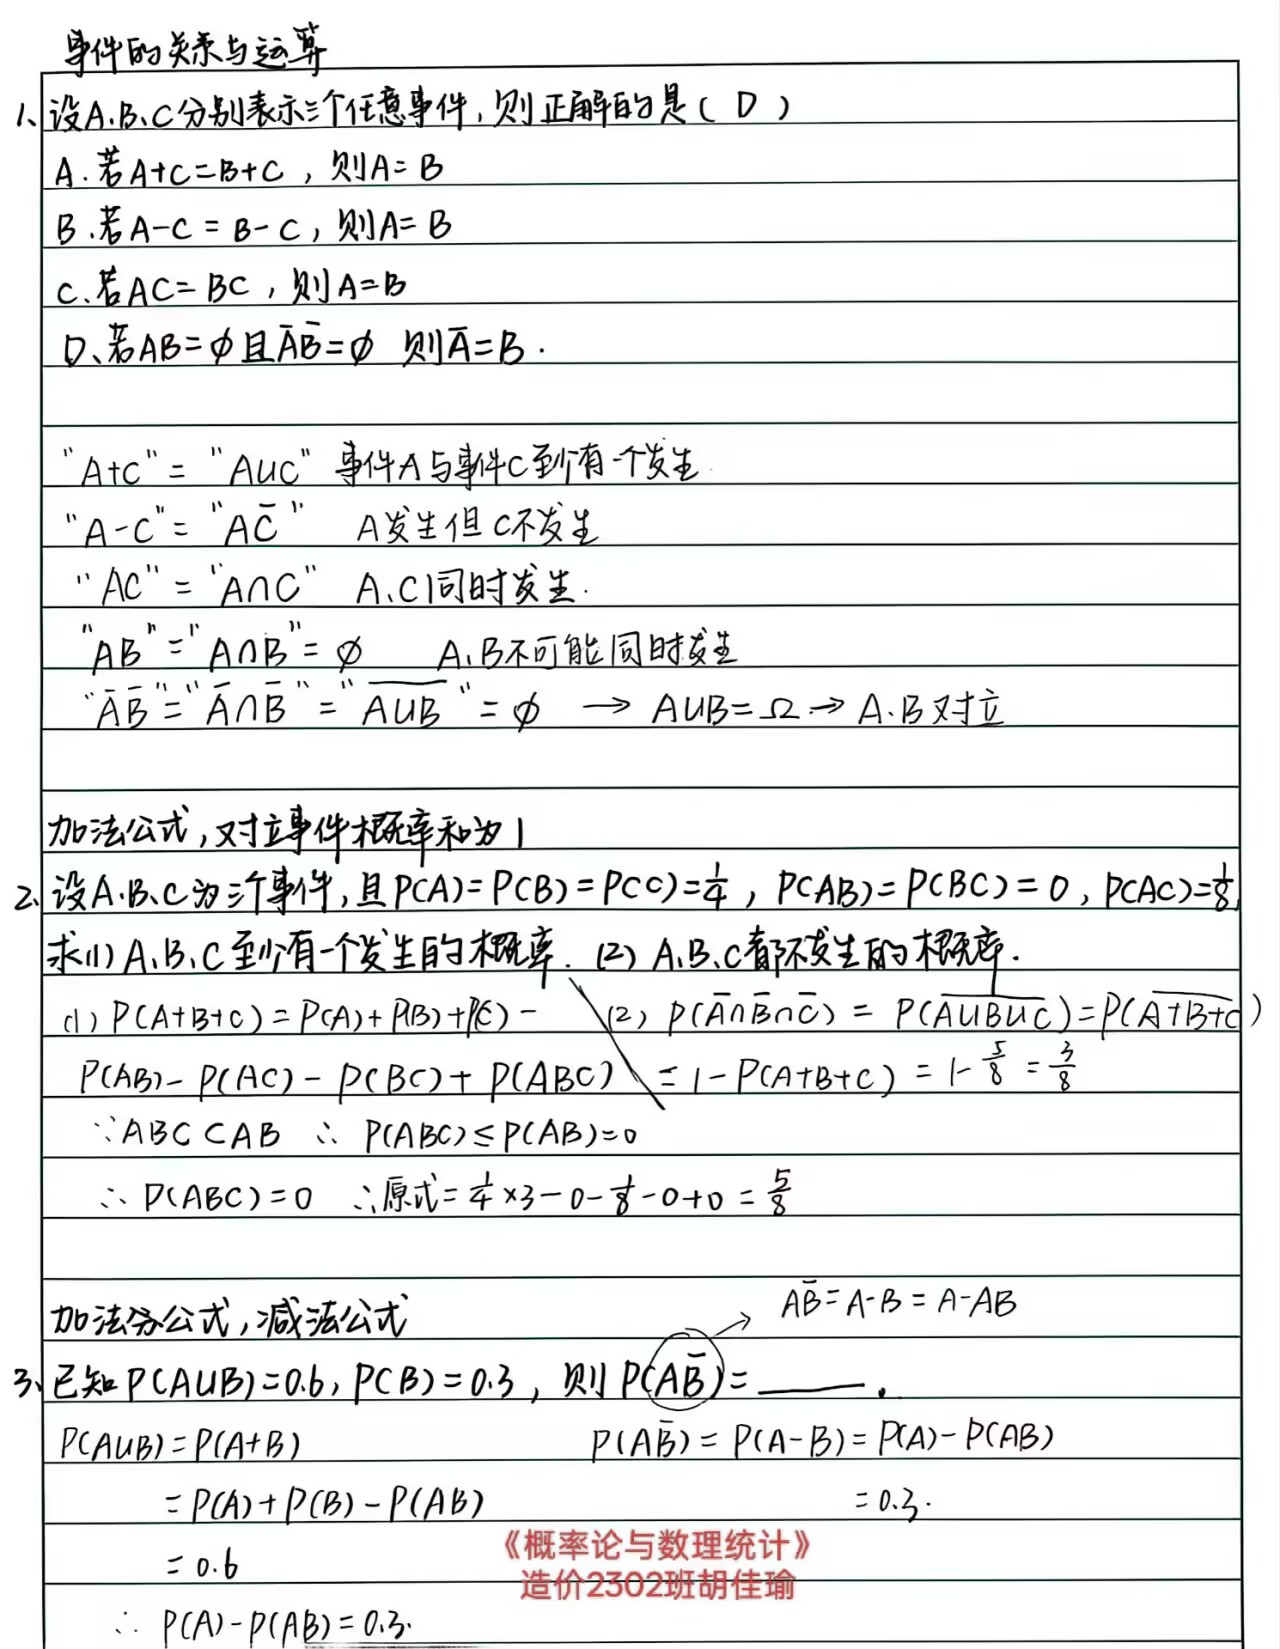 事件的关系与运算
1、设A.B.C分别表示三个任意事件,则正解的是( D )
A.若A+C=B+C,则A=B
B.若A-C=B-C,则A=B
C.若AC=BC,则A=B
D、若AB=∅且A̅B̅=∅ 则A̅=B.
"A+C"="A∪C" 事件A与事件C至少有一个发生.
"A-C"="AC̅" A发生但C不发生
"AC"="A∩C" A、C同时发生.
"AB"="A∩B"=∅ A、B不可能同时发生
"A̅B̅"="A̅∩B̅"="\overline{A∪B}"=∅ → A∪B=Ω → A.B对立
加法公式,对立事件概率和为1
2、设A.B.C为三个事件,且P(A)=P(B)=P(C)=1/4,P(AB)=P(BC)=0,P(AC)=1/8,
求(1)A、B、C至少有一个发生的概率.(2)A.B.C都不发生的概率.
(1) P(A+B+C)=P(A)+P(B)+P(C)-
P(AB)-P(AC)-P(BC)+P(ABC)
∵ABC⊂AB ∴P(ABC)≤P(AB)=0
∴P(ABC)=0 ∴原式=1/4×3-0-1/8-0+0=5/8
(2) P(A̅∩B̅∩C̅)=P(\overline{A∪B∪C})=P(\overline{A+B+C})
=1-P(A+B+C)=1-5/8=3/8
加法公式,减法公式
AB̅=A-B=A-AB
3、已知P(A∪B)=0.6,P(B)=0.3,则P(AB̅)=______.
P(A∪B)=P(A+B)
=P(A)+P(B)-P(AB)
=0.6
∴P(A)-P(AB)=0.3.
P(AB̅)=P(A-B)=P(A)-P(AB)
=0.3.
《概率论与数理统计》
造价2302班胡佳瑜